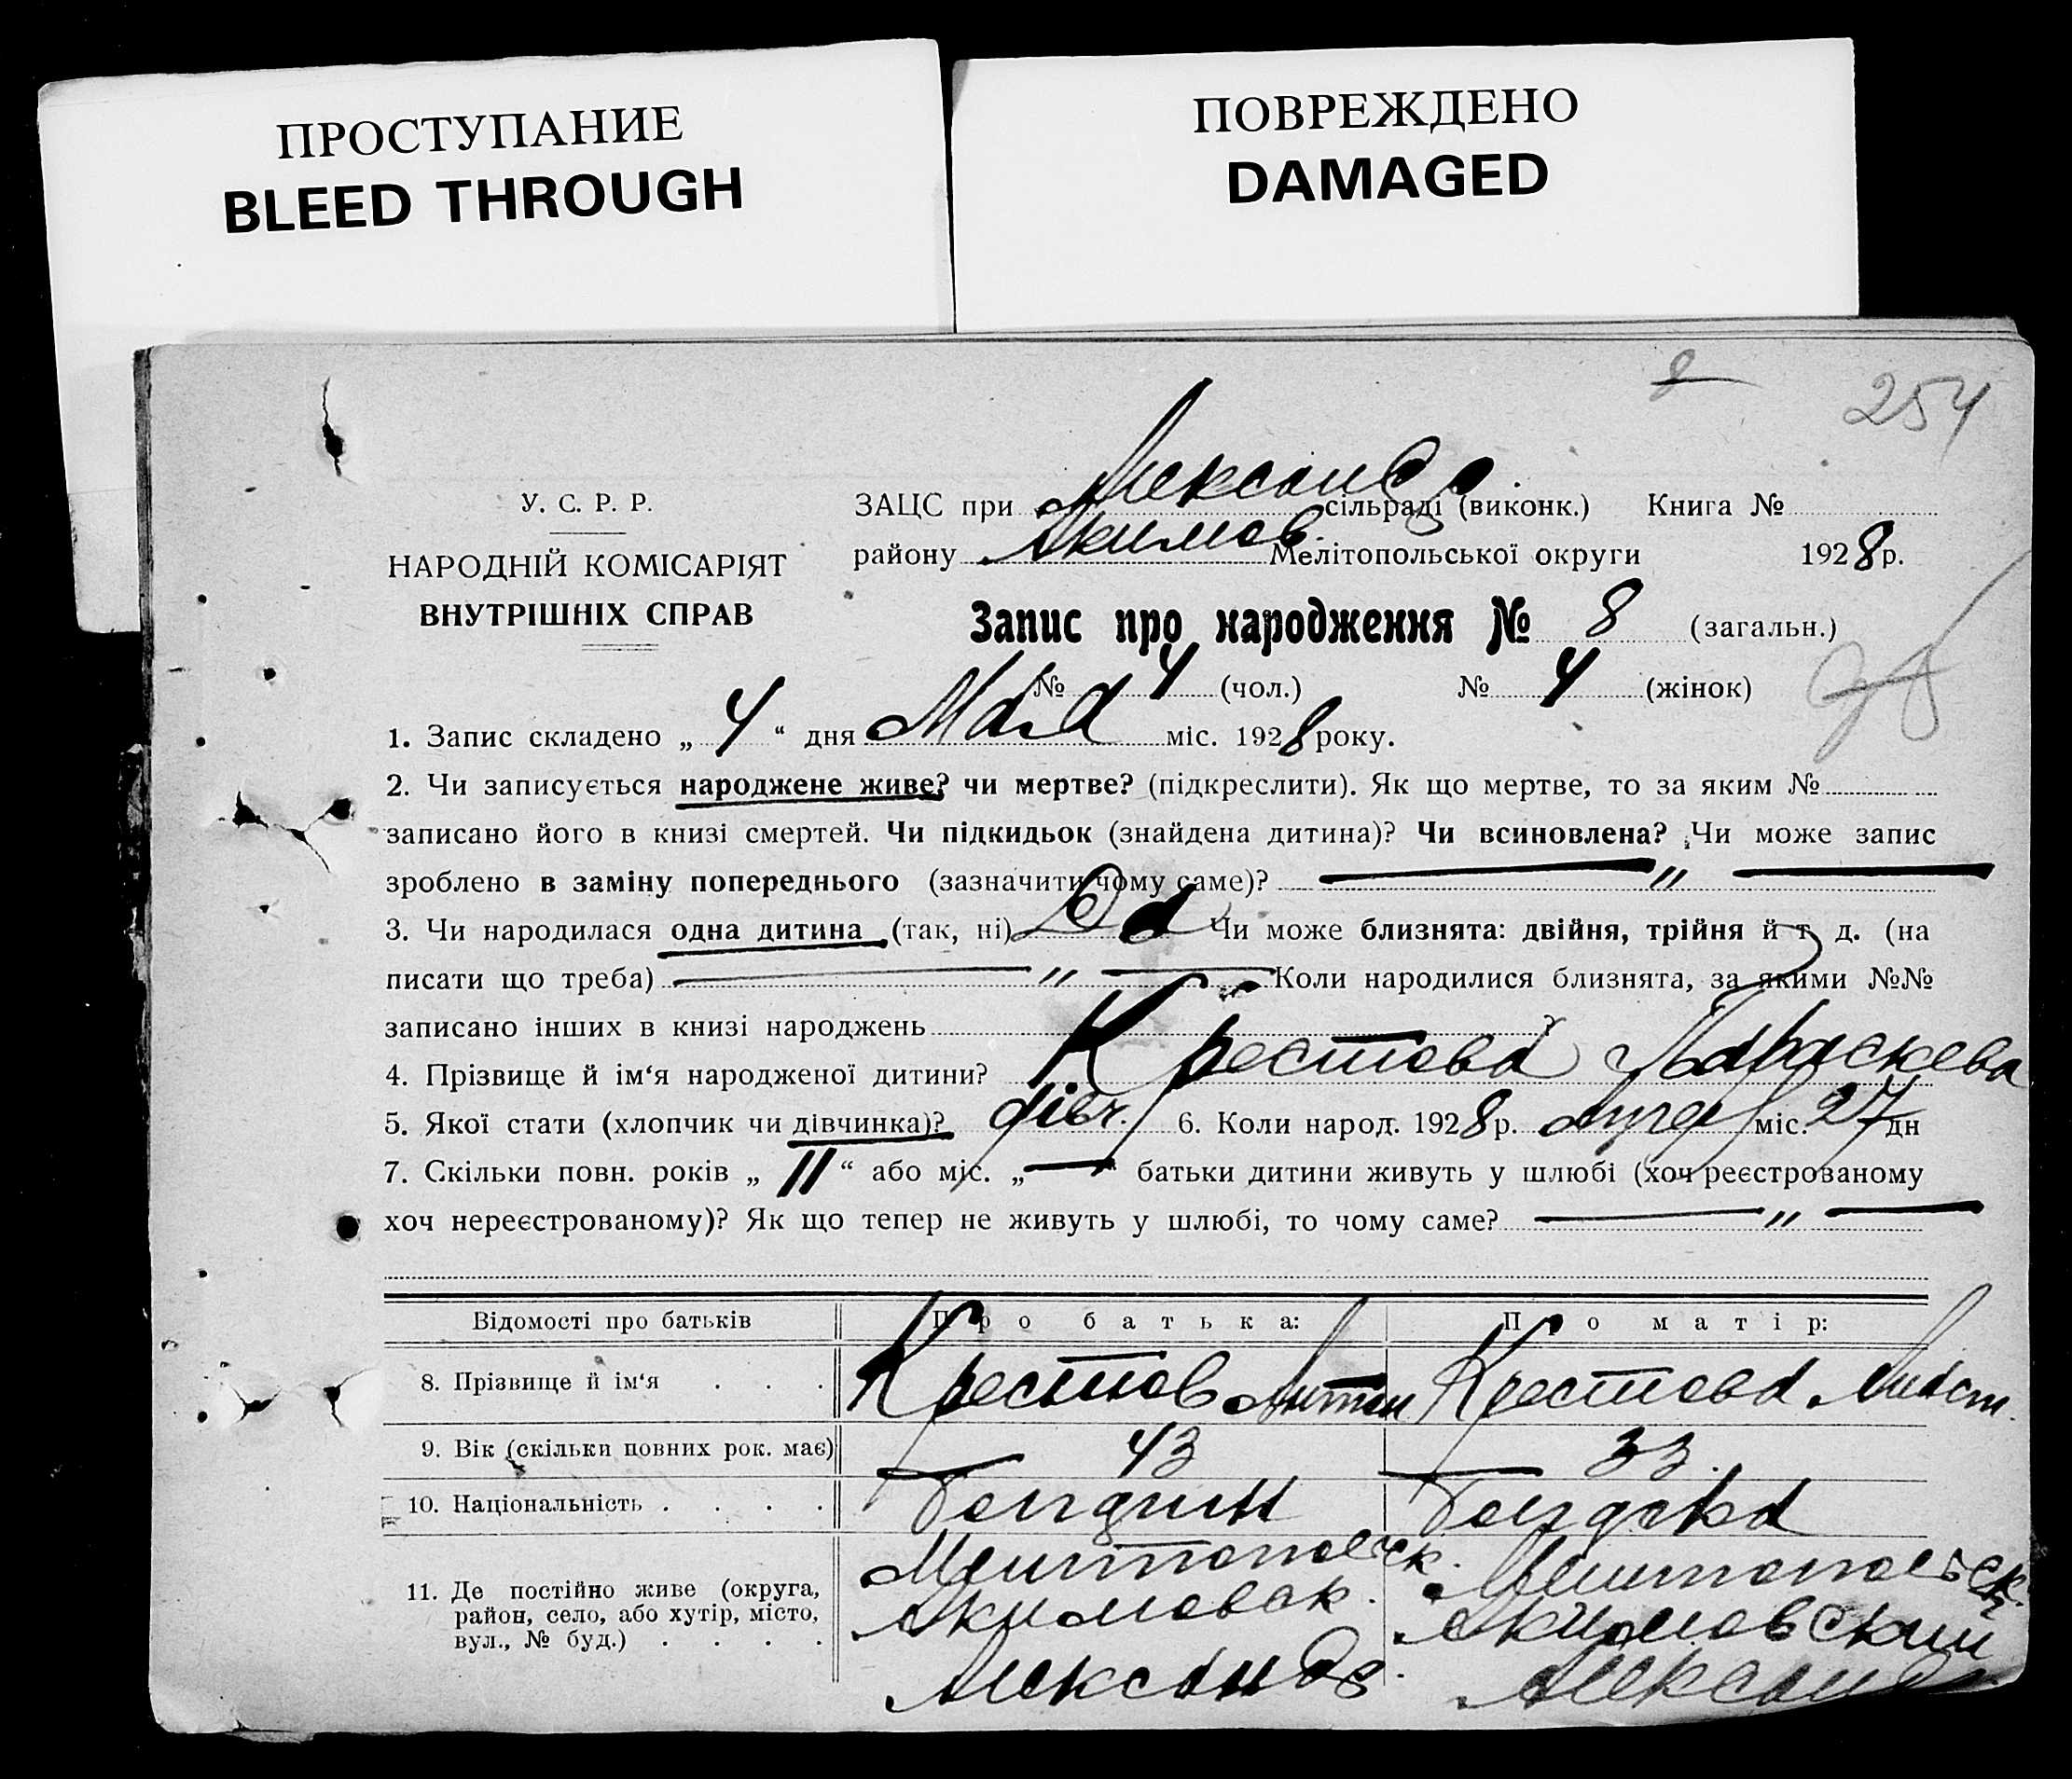 ПРОСТУПАНИЕ
BLEED THROUGH
ПОВРЕЖДЕНО
DAMAGED
8
254
У. С. Р. Р.
НАРОДНІЙ КОМІСАРІЯТ
ВНУТРІШНІХ СПРАВ
ЗАЦС при Александр. сільраді (виконк.) Книга №
району Акимов. Мелітопольської округи 1928 р.
Запис про народження № 8 (загальн.)
№ 4 (чол.) № 4 (жінок)
1. Запис складено „ 4 “ дня Мая міс. 1928 року.
2. Чи записується народжене живе? чи мертве? (підкреслити). Як що мертве, то за яким №
записано його в книзі смертей. Чи підкидьок (знайдена дитина)? Чи всиновлена? Чи може запис
зроблено в заміну попереднього (зазначити чому саме)? — „ —
3. Чи народилася одна дитина (так, ні) Чи може близнята: двійня, трійня й т. д. (на
писати що треба) — „ — Коли народилися близнята, за якими №№
записано інших в книзі народжень ?
4. Прізвище й ім‘я народженої дитини? Крестова Параскева
5. Якої стати (хлопчик чи дівчинка)? дівч. 6. Коли народ. 1928 р. міс. 27 дн
7. Скільки повн. років „ 11 “ або міс. „ — “ батьки дитини живуть у шлюбі (хоч реєстрованому
хоч нереєстрованому)? Як що тепер не живуть у шлюбі, то чому саме? — „ —
Відомості про батьків Про батька: Про матір:
8. Прізвище й ім‘я . . . Крестов Антон Крестова Анаст.
9. Вік (скільки повних рок. має) 43 33.
10. Національність . . . . Болгарин Болгарка
11. Де постійно живе (округа,
район, село, або хутір, місто,
вул., № буд.) . . . .
Мелитопольск. Мелитопольск.
Акимовск. Акимовский
Александр. Александр.